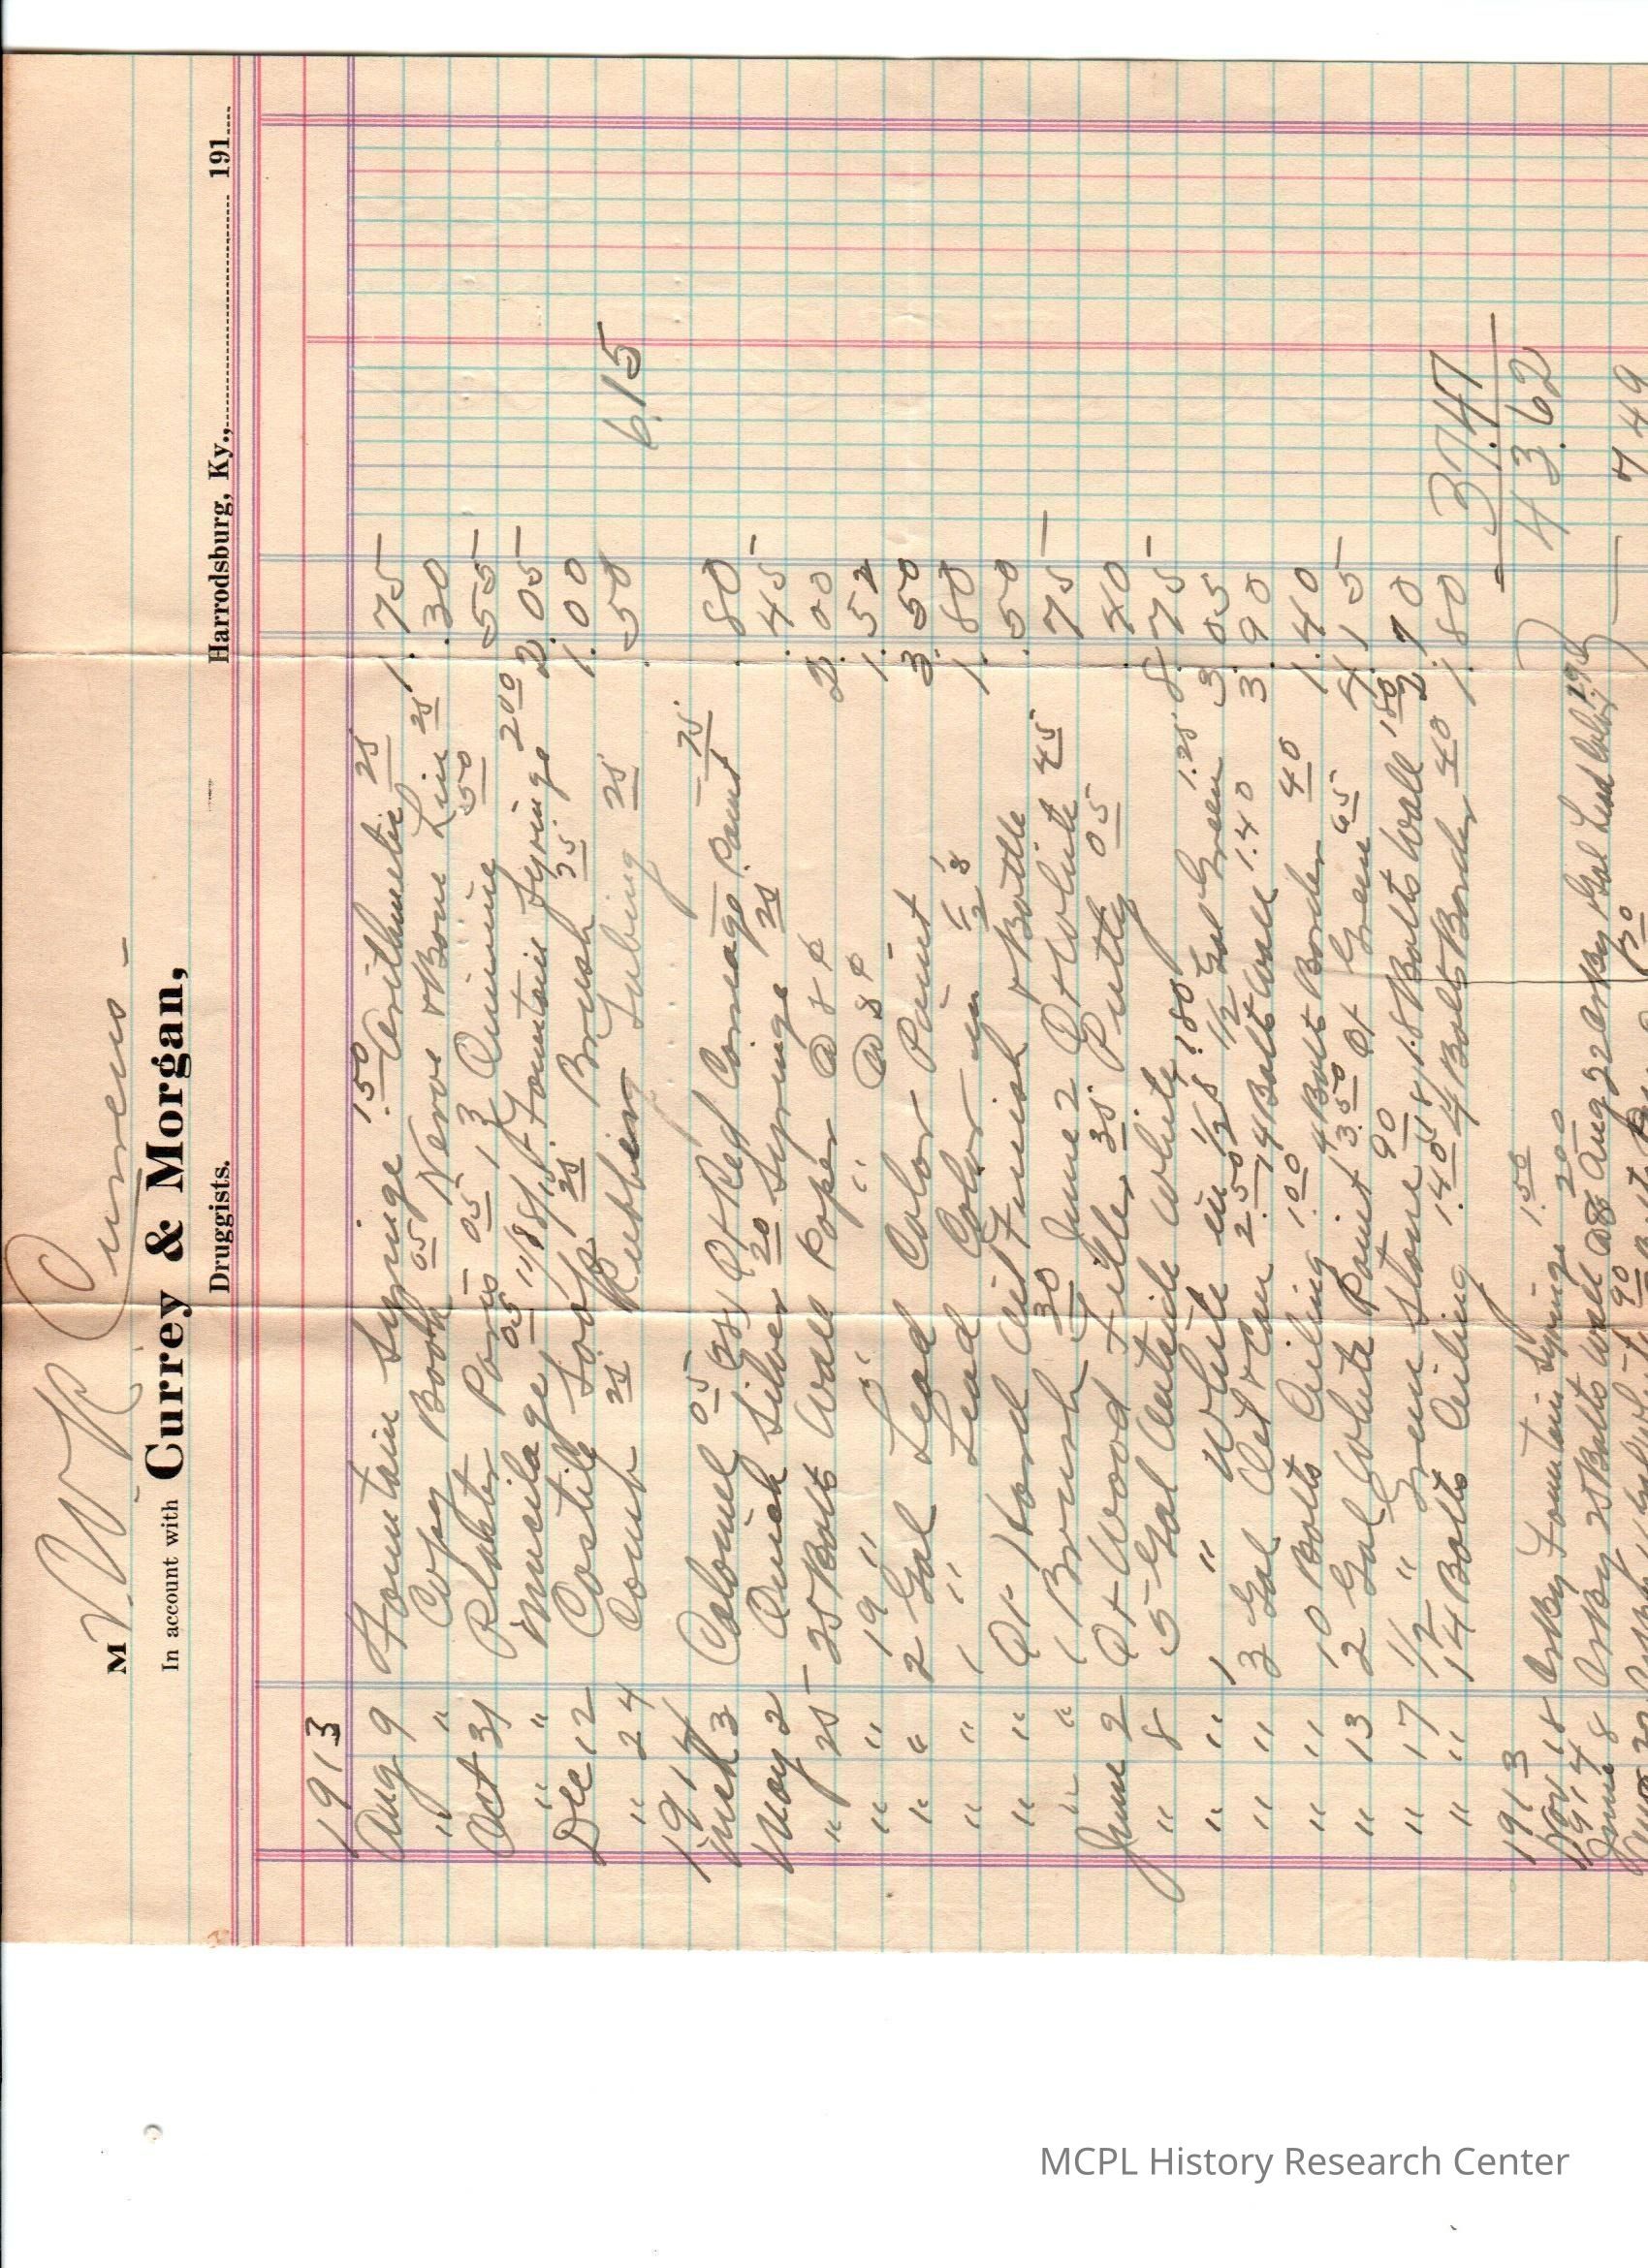 M W R Curens
In account with Currey & Morgan,
Druggists. Harrodsburg, Ky., 191
1913
Aug 9 Fountain Syringe 1.50 Arithmetic 25 1.75
" " Copy Book 05 Nerve & Bone Lin 25 .30
Oct 31 Plaster Paris 05 1 ℥ Quinine 50 .55
" " Mucilage 05 Fountain Syringe 2 00 2.05
Dec 12 Castile Soap 25 Brush 1.00
" 24 Comb 25 Rubbing Tubing 25 .50
6.15
1914
Mch 3 Calomel 05 Qt Red Carriage Paint 75 .80
May 2 Quick Silver 20 Syringe 25 .45
" 25 25 Bolts Wall Paper @ 8¢ 2.00
" " 19 " " " @ 8¢ 1.52
" " 2 Gal Lead Color Paint 3.50
" " 1 " Lead Color in 1.80
" " Qt Hard Oil Finish & Bottle .50
" " 1 Brush 30 June 2 Qt White 45 .75
June 2 Qt Wood Filler 35 Putty 05 .40
" 8 5 Gal Outside White 8.75
" " 1 " White in 1/2s 1.80 1/2 Gal Green 1.25 3.05
" " 3 Gal Oil & Can 2.50 14 Bolts Wall 1.40 3.90
" " 10 Bolts Ceiling 1.00 4 Bolts Border 40 1.40
" 13 2 Gal White Paint 3.50 Qt Green 65 4.15
" 17 1/2 " Green Stone 90 18 Bolts Wall 1 80 2.70
" " 14 Bolts Ceiling 1.40 4 Bolts Border 40 1.80
37.47
43.62
1913
Nov 18 Cr By Fountain Syringe 1.50
1914
June 8 Cr By 25 Bolts Wall @8 2 00 Aug 22 Cr By 1 Gal Lead Color
7 49